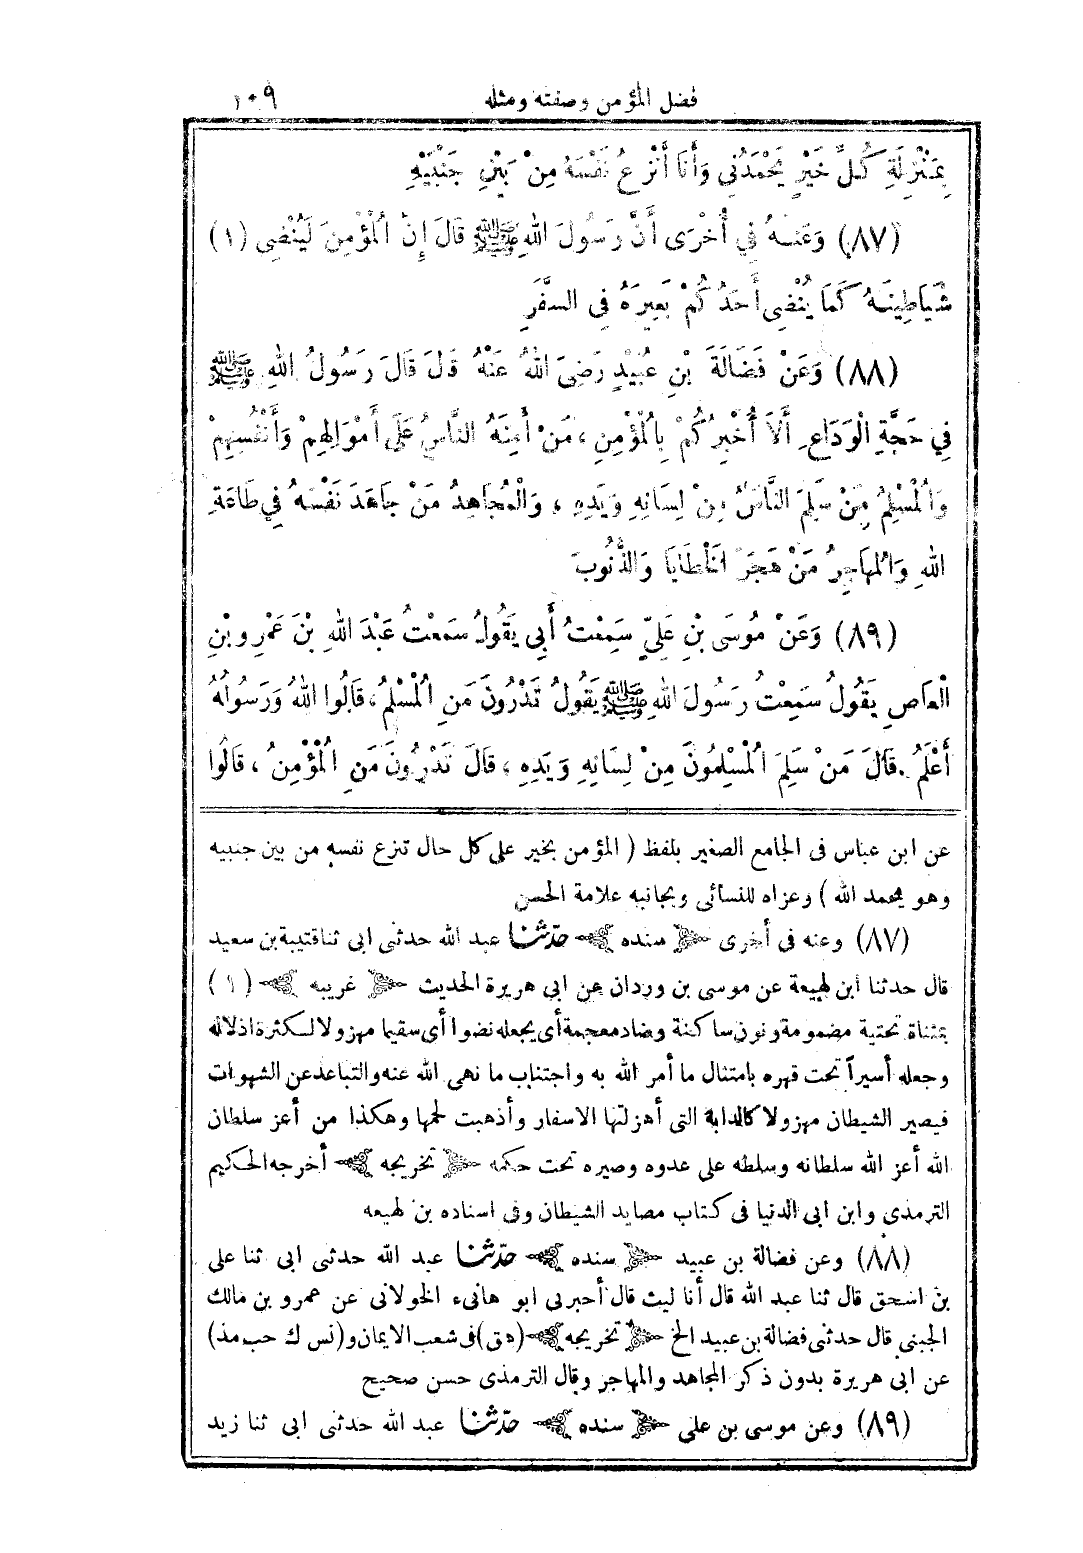 فضل المؤمن وصفته ومثله ١٠٩
بِمَنْزِلَةِ كُلِّ خَيْرٍ يَحْمَدُنِي وَأَنَا أَنْزِعُ نَفْسَهُ مِنْ بَيْنِ جَنْبَيْهِ
(٨٧) وَعَنْهُ فِي أُخْرَى أَنَّ رَسُولَ اللهِ ﷺ قَالَ إِنَّ الْمُؤْمِنَ لَيُنْضِي (١)
شَيَاطِينَهُ كَمَا يُنْضِي أَحَدُكُمْ بَعِيرَهُ فِي السَّفَرِ
(٨٨) وَعَنْ فَضَالَةَ بْنِ عُبَيْدٍ رَضِيَ اللهُ عَنْهُ قَالَ قَالَ رَسُولُ اللهِ ﷺ
فِي حَجَّةِ الْوَدَاعِ أَلَا أُخْبِرُكُمْ بِالْمُؤْمِنِ، مَنْ أَمِنَهُ النَّاسُ عَلَى أَمْوَالِهِمْ وَأَنْفُسِهِمْ
وَالْمُسْلِمُ مَنْ سَلِمَ النَّاسُ مِنْ لِسَانِهِ وَيَدِهِ، وَالْمُجَاهِدُ مَنْ جَاهَدَ نَفْسَهُ فِي طَاعَةِ
اللهِ وَالْمُهَاجِرُ مَنْ هَجَرَ الْخَطَايَا وَالذُّنُوبَ
(٨٩) وَعَنْ مُوسَى بْنِ عَلِيٍّ سَمِعْتُ أَبِي يَقُولُ سَمِعْتُ عَبْدَ اللهِ بْنَ عَمْرِو بْنِ
الْعَاصِ يَقُولُ سَمِعْتُ رَسُولَ اللهِ ﷺ يَقُولُ تَدْرُونَ مَنِ الْمُسْلِمُ، قَالُوا اللهُ وَرَسُولُهُ
أَعْلَمُ. قَالَ مَنْ سَلِمَ الْمُسْلِمُونَ مِنْ لِسَانِهِ وَيَدِهِ، قَالَ تَدْرُونَ مَنِ الْمُؤْمِنُ، قَالُوا
عن ابن عباس فى الجامع الصغير بلفظ (المؤمن بخير على كل حال تنزع نفسه من بين جنبيه
وهو يحمد الله) وعزاه للنسائى وبجانبه علامة الحسن
(٨٧) وعنه فى أخرى ﴿سنده﴾ حدّثنا عبد الله حدثنى ابى ثنا قتيبة بن سعيد
قال حدثنا ابن لهيعة عن موسى بن وردان عن ابى هريرة الحديث ﴿غريبه﴾ (١)
بمثناة تحتية مضمومة ونون ساكنة وضاد معجمة أى يجعله نضوا أى سقيما مهزولا لكثرة اذلاله
وجعله أسيراً تحت قهره بامتثال ما أمر الله به واجتناب ما نهى الله عنه والتباعد عن الشهوات
فيصير الشيطان مهزولا كالدابة التى أهزلتها الاسفار وأذهبت لحمها وهكذا من أعز سلطان
الله أعز الله سلطانه وسلطه على عدوه وصيره تحت حكمه ﴿تخريجه﴾ أخرجه الحكيم
الترمذى وابن ابى الدنيا فى كتاب مصايد الشيطان وفى اسناده بن لهيعه
(٨٨) وعن فضالة بن عبيد ﴿سنده﴾ حدّثنا عبد الله حدثنى ابى ثنا على
بن اسحق قال ثنا عبد الله قال أنا ليث قال أخبرنى ابو هانىء الخولانى عن عمرو بن مالك
الجنبى قال حدثنى فضالة بن عبيد الخ ﴿تخريجه﴾ (هق) فى شعب الايمان و(نس ك حب مذ)
عن ابى هريرة بدون ذكر المجاهد والمهاجر وقال الترمذى حسن صحيح
(٨٩) وعن موسى بن على ﴿سنده﴾ حدّثنا عبد الله حدثنى ابى ثنا زيد